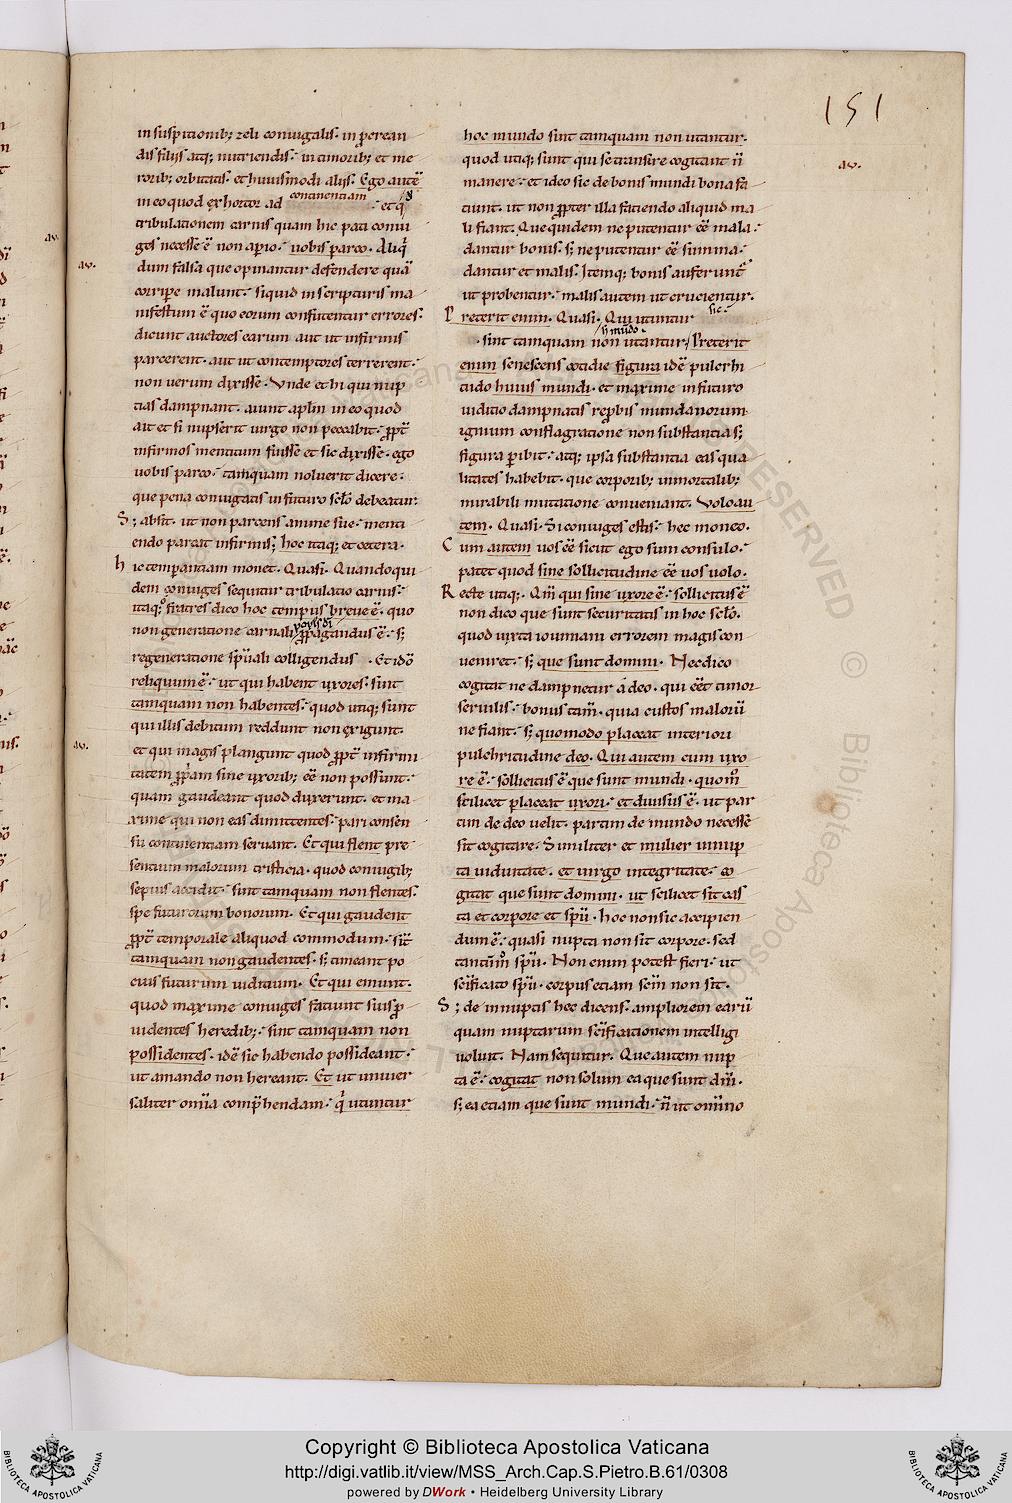 151
in suspitionib; zeli coniugalis. in procrean
dis filiis atq; nutriendis. in timorib; et me
rorib; orbitatis. et huiusmodi aliis. Ego autē
in eo quod exhortor ad continentiam
tribulationem carnis quam hic pati coniu
ges necesse ē non aperio. uobis parco. Aliq̄
dum falsa que opinantur defendere quā
corripe malunt. siquid in scripturis ma
nifestum ē quo eorum confutentur errores.
dicunt auctores earum aut ut infirmis
parcerent. aut ut contemptores terrerent.
non uerum dixisse. Vnde et hi qui nup
tias dampnant. aiunt aplm in eo quod
ait et si nupserit uirgo non peccabit. ꝓpt̄
infirmos mentitum fuisse et sic dixisse. ego
uobis parco. tamquam noluerit dicere.
que pena coniugatis in futuro sclo debeatur.
S; absit. ut non parcens anime sue. menti
endo parcat infirmis; hoc itaq; et cetera.
hic temperantiam monet. Quasi. Quandoqui
dem coniuges sequitur tribulatio carnis.
itaq; fratres dico hoc tempus breue ē. quo
non generatione carnali ꝓpagandus ē. s;
regeneratione spuali colligendus. Et idō
reliquum ē. ut qui habent uxores. sint
tamquam non habentes. quod utiq; sunt
qui illis debitum reddunt non exigunt.
et qui magis plangunt quod ꝓpt̄ infirmi
tatem ꝓpam sine uxorib; ēē non possunt.
quam gaudeant quod duxerunt. et ma
xime qui non eas dimittentes. pari consen
su continentiam seruant. Et qui flent pre
sentium malorum tristicia. quod coniugib;
sepius accidit. sint tamquam non flentes.
spe futurorum bonorum. Et qui gaudent
ꝓpt̄ temporale aliquod commodum. sint
tamquam non gaudentes. s; timeant po
cius futurum iuditium. Et qui emunt.
quod maxime coniuges faciunt suis ꝓ
uidentes heredib;. sint tamquam non
possidentes. idē sic habendo possideant.
ut amando non hereant. Et ut uniuer
saliter omia comphendam. q̄ utuntur
hoc mundo sint tamquam non utantur.
quod utiq; sunt qui se transire cogitant n̄
manere. et ideo sic de bonis mundi bona fa
ciunt. ut non ꝓpter illa faciendo aliquid ma
li fiant. Que quidem ne putentur ēē mala.
dantur bonis. s; ne putentur ēē summa.
dantur et malis. Itemq; bonis auferunt̄
ut probentur. malis autem ut crucientur.
Preterit enim. Quasi. Qui utuntur sic.
sint tamquam non utantur. Preterit
enim senescens cotidie figura idē pulcrhi
tudo huius mundi. et maxime in futuro
iuditio dampnatis reprobis mundanorum
ignium conflagratione non substantia s;
figura peribit. atq; ipsa substantia eas qua
litates habebit. que corporib; inmortalib;
mirabili mutatione conueniant. Volo au
tem. Quasi. Si coniuges estis. hec moneo.
Cum autem uos ēē sicut ego sum consulo.
patet quod sine sollicitudine ēē uos uolo.
Recte utiq;. Qm̄ qui sine uxore ē. sollicitus ē
non dico que sunt securitatis in hoc sclo.
quod iuxta iouiniani errorem magis con
ueniret. s; que sunt domini. Nec dico
cogitat ne dampnetur a deo. qui ēēt timor
seruilis. bonus tam̄. quia custos malorū
ne fiant. s; quomodo placeat interiori
pulchritudine deo. Qui autem cum uxo
re ē. sollicitus ē que sunt mundi. quom̄
scilicet placeat uxori. et diuisus ē. ut par
tim de deo uelit. partim de mundo necesse
sit cogitare. Similiter et mulier innup
ta uiduitate. et uirgo integritate. co
gitat que sunt domini. ut scilicet sit cas
ta et corpore et spū. hoc non sic accipien
dum ē. quasi nupta non sit corpore. sed
tantūm̄ spū. Non enim potest fieri. ut
scīficato spū. corpus etiam scm̄ non sit.
S; de innuptis hoc dicens. ampliorem earū
quam nuptarum scīficationem intelligi
uoluit. Nam sequitur. Que autem nup
ta ē. cogitat non solum ea que sunt dm̄.
s; ea etiam que sunt mundi. n̄ ut omīno
Copyright © Biblioteca Apostolica Vaticana
http://digi.vatlib.it/view/MSS_Arch.Cap.S.Pietro.B.61/0308
powered by DWork • Heidelberg University Library